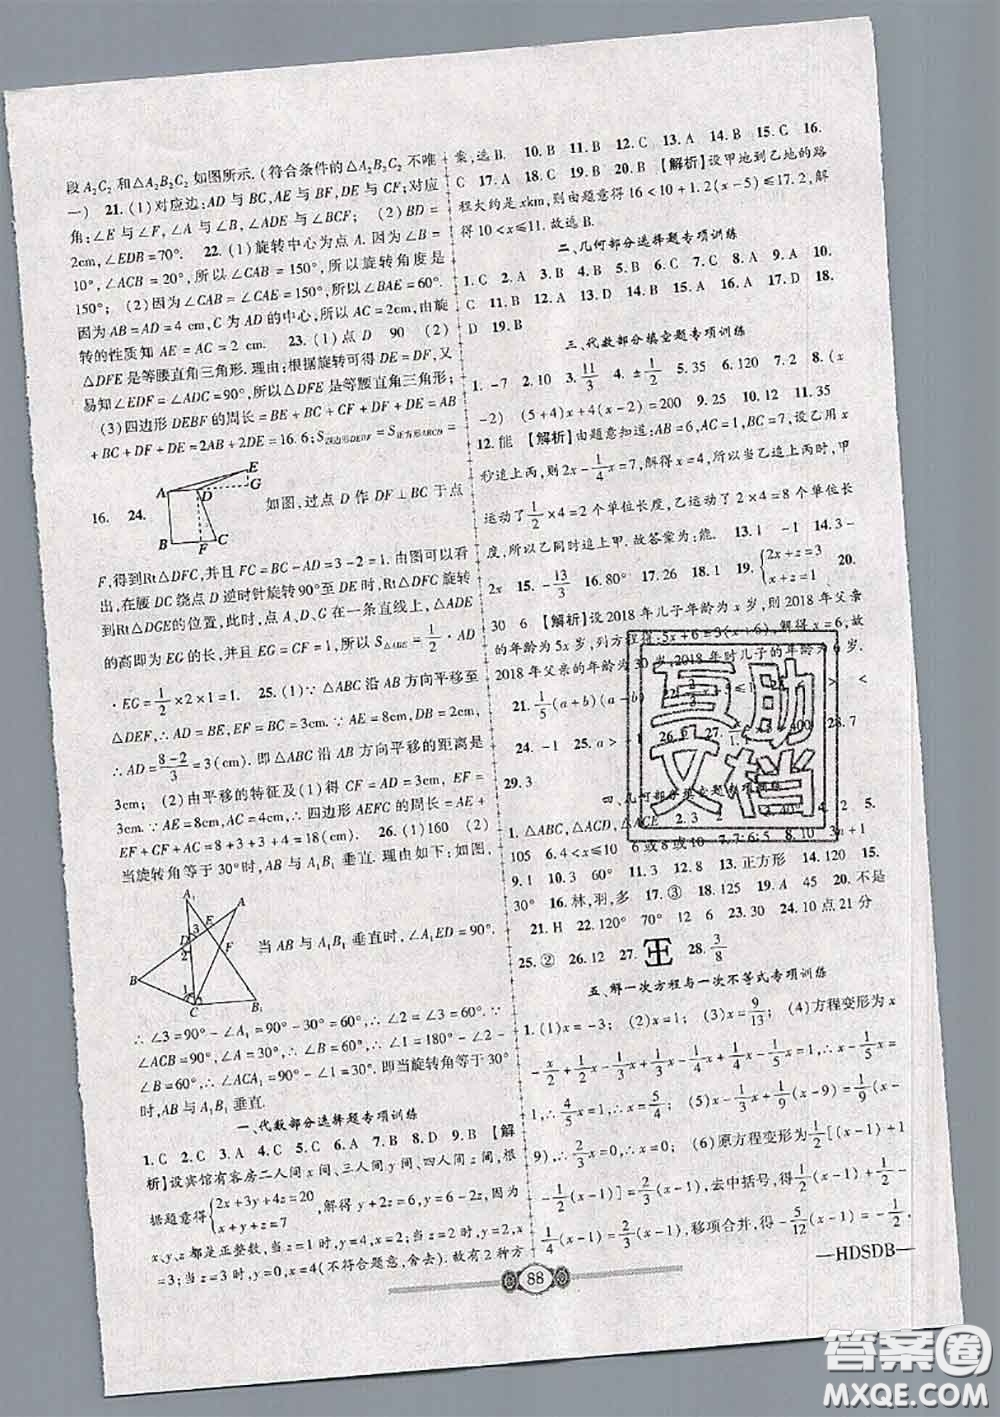 段A₂C₂和△A₂B₂C₂如图所示.(符合条件的△A₂B₂C₂不唯
一) 21.(1)对应边:AD与BC,AE与BF,DE与CF;对应
角:∠E与∠F,∠A与∠B,∠ADE与∠BCF; (2)BD=
2cm,∠EDB=70°. 22.(1)旋转中心为点A.因为∠B=
10°,∠ACB=20°,所以∠CAB=150°,所以旋转角度是
150°; (2)因为∠CAB=∠CAE=150°,所以∠BAE=60°.
因为AB=AD=4 cm,C为AD的中心,所以AC=2cm,由旋
转的性质知AE=AC=2 cm. 23.(1)点D 90 (2)
△DFE是等腰直角三角形.理由:根据旋转可得DE=DF,又
易知∠EDF=∠ADC=90°,所以△DFE是等腰直角三角形;
(3)四边形DEBF的周长=BE+BC+CF+DF+DE=AB
+BC+DF+DE=2AB+2DE=16.6;S四边形DEBF=S正方形ABCD=
16. 24.
A E D G B F C
如图,过点D作DF⊥BC于点
F,得到Rt△DFC,并且FC=BC-AD=3-2=1.由图可以看
出,在腰DC绕点D逆时针旋转90°至DE时,Rt△DFC旋转
到Rt△DGE的位置,此时,点A、D、G在一条直线上,△ADE
的高即为EG的长,并且EG=CF=1,所以S△ADE=1/2·AD
·EG=1/2×2×1=1. 25.(1)∵△ABC沿AB方向平移至
△DEF,∴AD=BE,EF=BC=3cm.∵AE=8cm,DB=2cm.
∴AD=(8-2)/3=3(cm).即△ABC沿AB方向平移的距离是
3cm; (2)由平移的特征及(1)得CF=AD=3cm,EF=
3cm.∵AE=8cm,AC=4cm,∴四边形AEFC的周长=AE+
EF+CF+AC=8+3+3+4=18(cm). 26.(1)160 (2)
当旋转角等于30°时,AB与A₁B₁垂直.理由如下:如图,
A₁ A E D 3 F 2 B 1 C B₁
当AB与A₁B₁垂直时,∠A₁ED=90°.
∴∠3=90°-∠A₁=90°-30°=60°,∴∠2=∠3=60°.∵
∠ACB=90°,∠A=30°,∴∠B=60°,∴∠1=180°-∠2-
∠B=60°,∴∠ACA₁=90°-∠1=30°.即当旋转角等于30°
时,AB与A₁B₁垂直.
一、代数部分选择题专项训练
1.C 2.C 3.A 4.C 5.C 6.A 7.B 8.D 9.B 【解
析】设宾馆有客房二人间x间、三人间y间、四人间z间,根
据题意得{2x+3y+4z=20 x+y+z=7,解得y+2z=6,y=6-2z,∵
x、y、z都是正整数,当z=1时,y=4,x=2;当z=2时,y=2,x=
3;当z=3时,y=0,x=4(不符合题意,舍去).故有2种方
案,选B. 10.B 11.B 12.C 13.A 14.B 15.C 16.
C 17.A 18.C 19.C 20.B 【解析】设甲地到乙地的路
程大约是xkm,则由题意得16<10+1.2(x-5)≤17.2,解
得10<x≤11.故选B.
二、几何部分选择题专项训练
1.C 2.A 3.B 4.C 5.B 6.D 7.C 8.A 9.A 10.
C 11.B 12.D 13.B 14.C 15.C 16.D 17.D 18.
D 19.B
三、代数部分填空题专项训练
1.-7 2.10 3.11/3 4.±1/2 5.35 6.120 7.2 8.(x
-2) (5+4)x+4(x-2)=200 9.25 10.12 11.35
12.能 【解析】由题意知道:AB=6,AC=1,BC=7,设乙用x
秒追上丙,则2x-1/4x=7,解得x=4,所以当乙追上丙时,甲
运动了1/2×4=2个单位长度,乙运动了2×4=8个单位长
度,所以乙同时追上甲.故答案为:能. 13.1 -1 14.3-
2x 15.-13/3 16.80° 17.26 18.1 19.{2x+z=3 x+z=3 20.
30 6 【解析】设2018年儿子年龄为x岁,则2018年父亲
的年龄为5x岁,列方程得:5x+6=3(x+6),解得x=6,故
2018年父亲的年龄为30岁,2018年时儿子的年龄为6岁.
21.1/5(a+b)(a-b)
24.-1 25.a>
28.7
29.3
1.△ABC,△ACD,△ACE 2.3
105 6.4<x≤10 6或8或10 7.7:6:5 8.10 3n+1
9.1 10.3 60° 11.9 12.8 13.正方形 14.120 15.
30° 16.林,羽,多 17.③ 18.125 19.A 45 20.不是
21.H 22.120° 70° 12 6 23.30 24.10点21分
25.② 26.12 27. 28.3/8
五、解一次方程与一次不等式专项训练
1.(1)x=-3; (2)x=1; (3)x=9/13; (4)方程变形为x
-x/2+1/2-1/2x+1/2+1/3x-1/3x+1/4x-1/4x+1/5x=1,∴x-1/5x=
1,∴4/5x=1,∴x=5/4; (5)x-1/3x+1/9(x-9)=1/9(x-
9),∴2/3x=0,∴x=0; (6)原方程变形为1/2[(x-1)+1
-1/2(x-1)]=2/3(x-1),去中括号,得1/2(x-1)+1/2-
1/4(x-1)=2/3(x-1),移项合并,得-5/12(x-1)=-1/2,
—HDSDB—
88
互助文档
答案圈
MXQE.COM